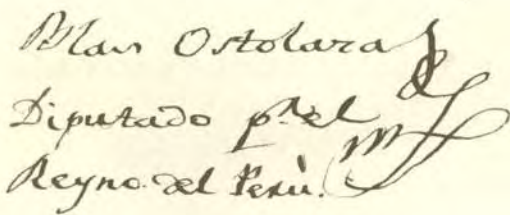 Blas Ostolaza
Diputado p.r el
Reyno del Perù.